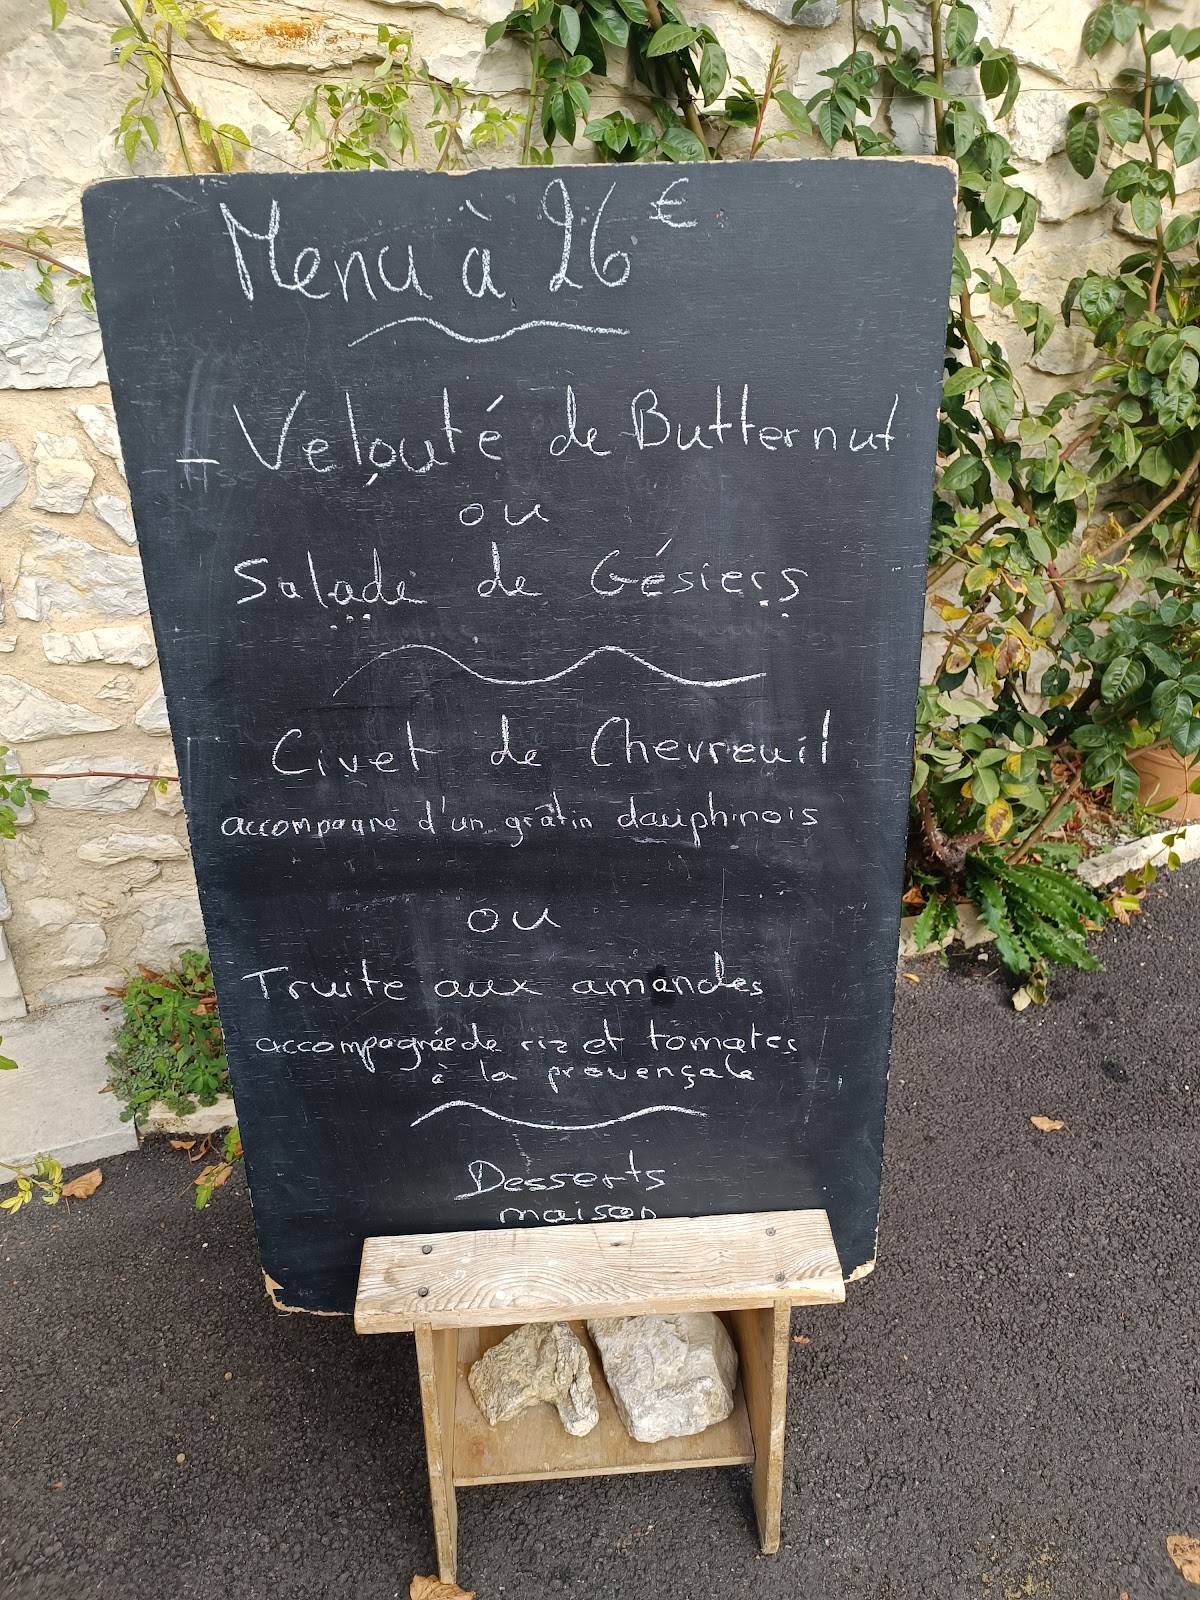 Menu à 26€
- Velouté de Butternut
ou
Salade de Gésiers
Civet de Chevreuil
accompagne d'un grâtin dauphinois
ou
Truite aux amandes
accompagnée de riz et tomates
à la provençale
Desserts
maison